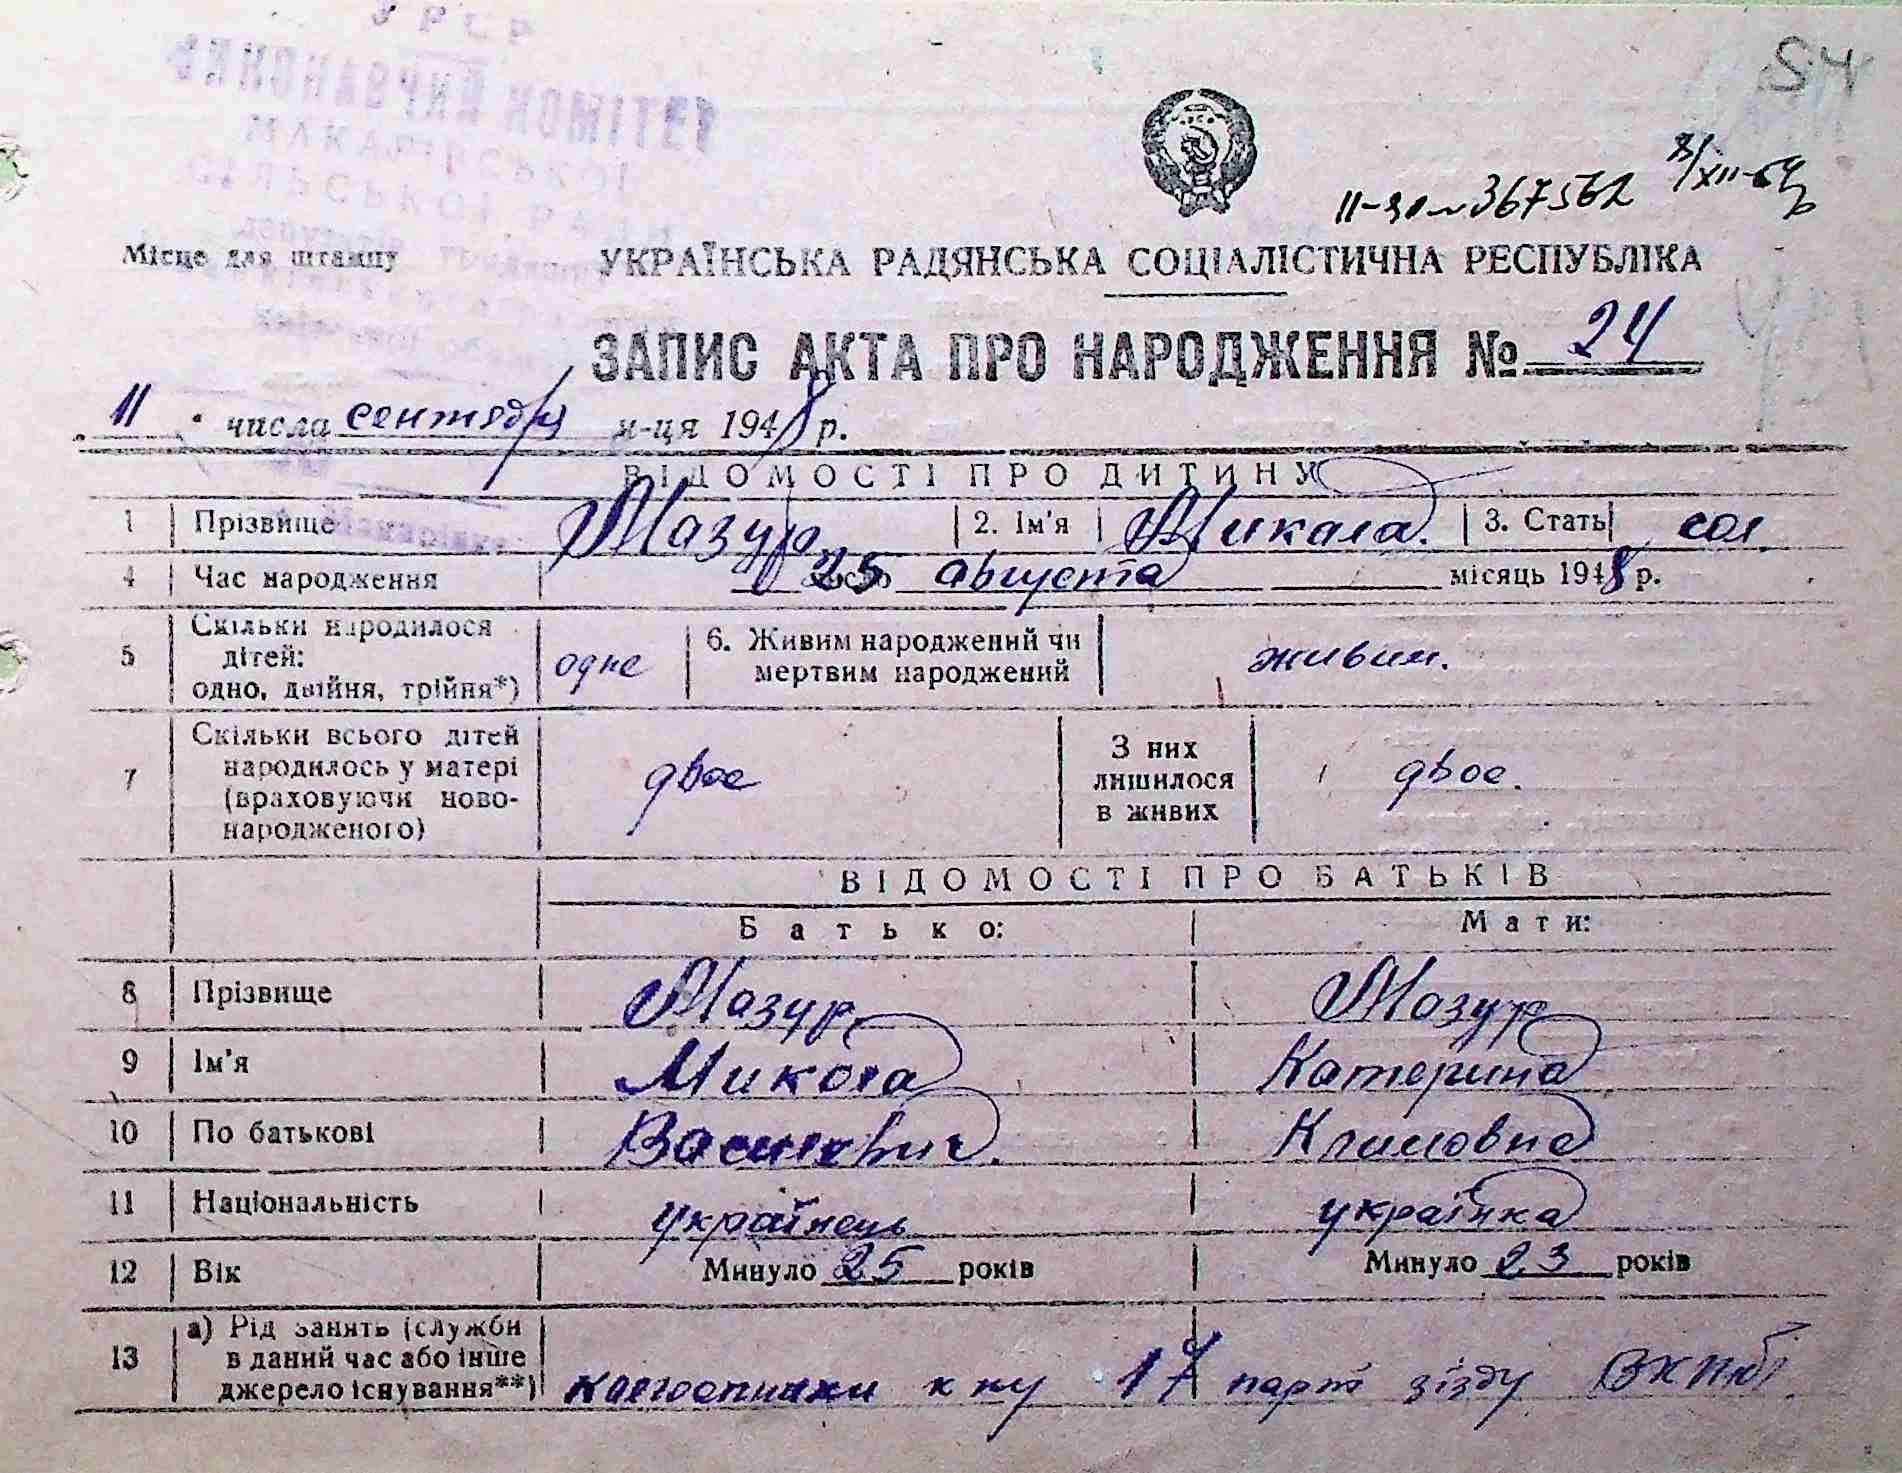 УРСР
ВИКОНАВЧИЙ КОМІТЕТ
МАКАРІВСЬКОЇ
СІЛЬСЬКОЇ РАДИ
54
II-ЯЛ № 367562
Місце для штампу
УКРАЇНСЬКА РАДЯНСЬКА СОЦІАЛІСТИЧНА РЕСПУБЛІКА
ЗАПИС АКТА ПРО НАРОДЖЕННЯ № 24
11 числа сентября м-ця 1948 р.
ВІДОМОСТІ ПРО ДИТИНУ
1 Прізвище Мазур 2. Ім'я Микола. 3. Стать чол.
4 Час народження 25 число августа місяць 1948 р.
5 Скільки народилося дітей: одно, двійня, трійня*) одне 6. Живим народжений чи мертвим народжений живим.
7 Скільки всього дітей народилось у матері (враховуючи новонародженого) двое З них лишилося в живих двое.
ВІДОМОСТІ ПРО БАТЬКІВ
Батько: Мати:
8 Прізвище Мазур Мазур
9 Ім'я Микола Катерина
10 По батькові Василевич. Климовна
11 Національність українець українка
12 Вік Минуло 25 років Минуло 23 років
13 а) Рід занять (служби в даний час або інше джерело існування**) колгоспники к-пу 17 парт зізду ВКПб.